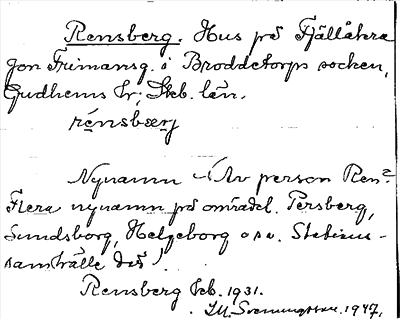 Rensberg. Hus på Fjällåkra
Jon Frimansg. i Broddetorps socken,
Gudhems hr; Skb. län.
rénsbærj
Nynamn - (Av person Ren?
Flera nynamn på området. Persberg,
Sundsborg, Helgeborg o.s.v. Stations-
samhälle där!
Rensberg Feb. 1931.
I.M. Svenungsson. 1947.